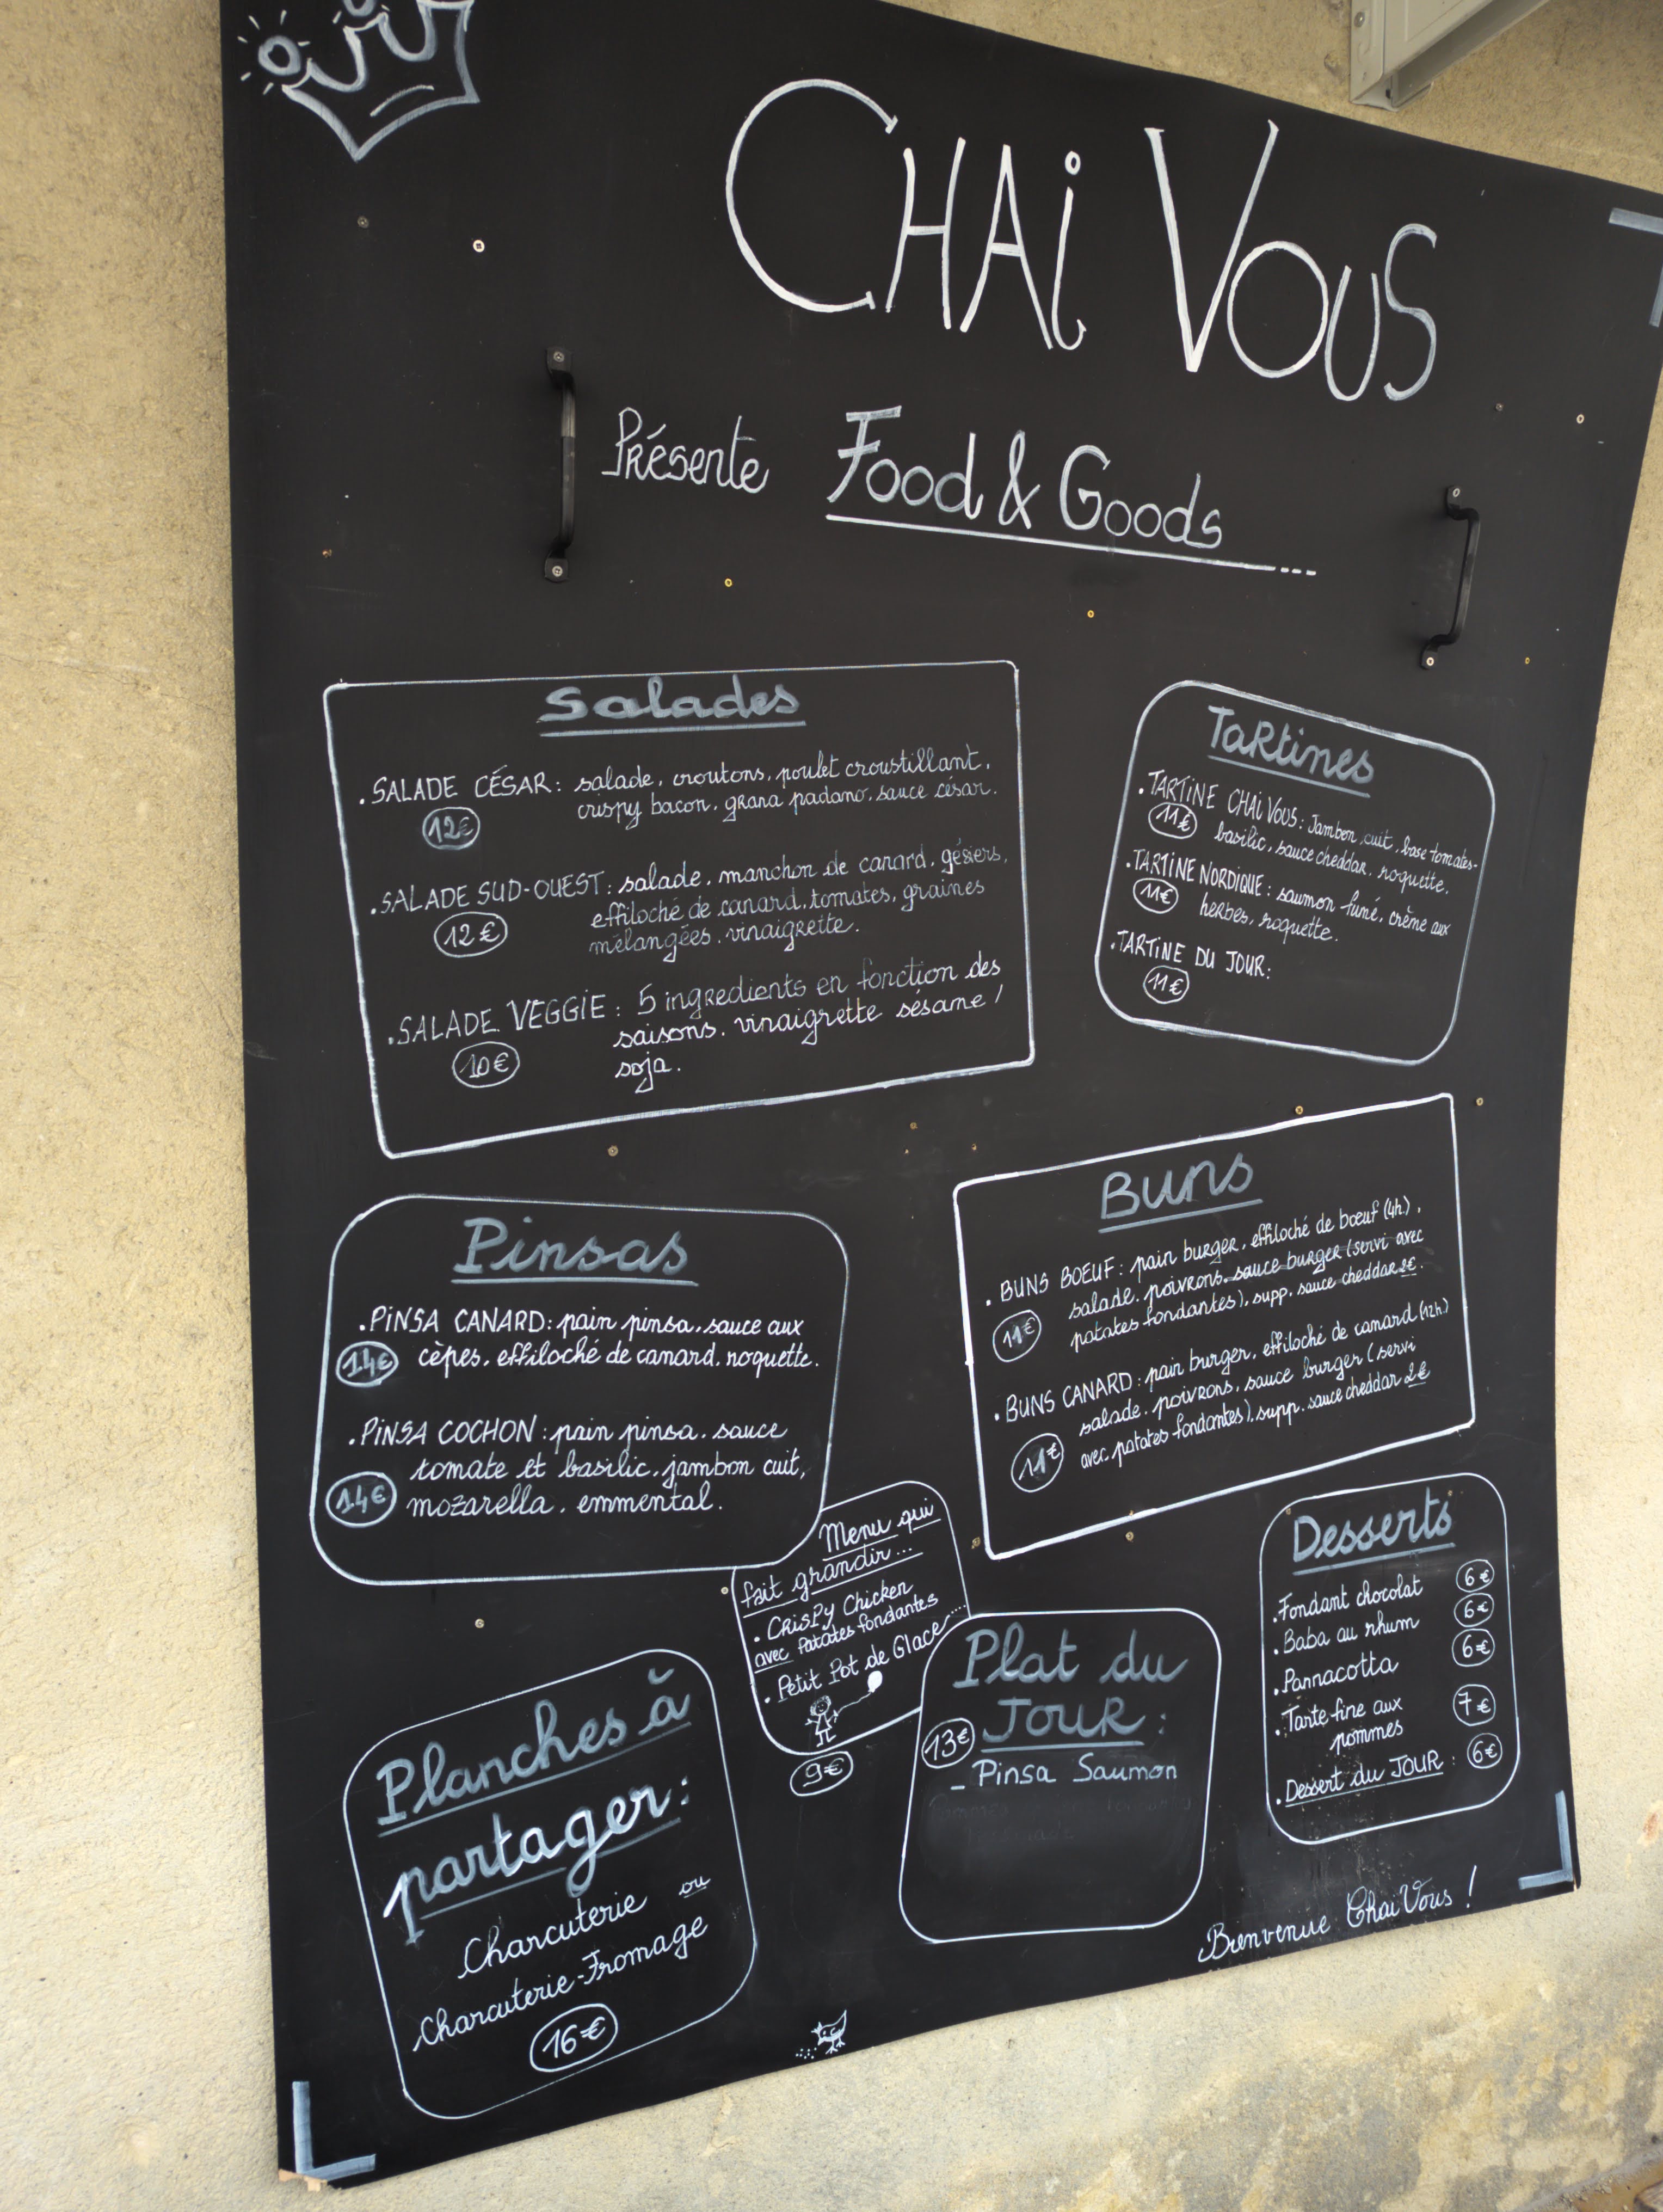 CHAi VOUS
Présente Food & Goods
Salades
. SALADE CÉSAR : salade, croutons, poulet croustillant,
crispy bacon, grana padano, sauce césar.
12€
. SALADE SUD-OUEST : salade, manchon de canard, gésiers,
effiloché de canard, tomates, graines
12€
mélangées, vinaigrette.
. SALADE VEGGIE : 5 ingredients en fonction des
saisons, vinaigrette sésame /
10€
soja.
Tartines
. TARTINE CHAi VOUS : Jambon cuit, base tomates-
11€
basilic, sauce cheddar, roquette.
. TARTINE NORDIQUE : saumon fumé, crème aux
11€
herbes, roquette.
. TARTINE DU JOUR :
11€
Pinsas
. PINSA CANARD : pain pinsa, sauce aux
14€ cèpes, effiloché de canard, roquette.
. PINSA COCHON : pain pinsa, sauce
tomate et basilic, jambon cuit,
14€ mozarella, emmental.
Buns
. BUNS BOEUF : pain burger, effiloché de bœuf (4h),
salade, poivrons, sauce burger (servi avec
11€ patates fondantes), supp. sauce cheddar 2€.
. BUNS CANARD : pain burger, effiloché de canard (12h)
salade, poivrons, sauce burger (servi
11€ avec patates fondantes), supp. sauce cheddar 2€
Menu qui
fait grandir...
. CRISPY Chicken
avec Patates fondantes
. Petit Pot de Glace....
9€
Plat du
JOUR :
13€
- Pinsa Saumon
Desserts
. Fondant chocolat 6€
. Baba au rhum 6€
. Pannacotta 6€
. Tarte fine aux
pommes 7€
. Dessert du JOUR : 6€
Planches à
partager :
Charcuterie ou
Charcuterie-Fromage
16€
Bienvenue Chai Vous !